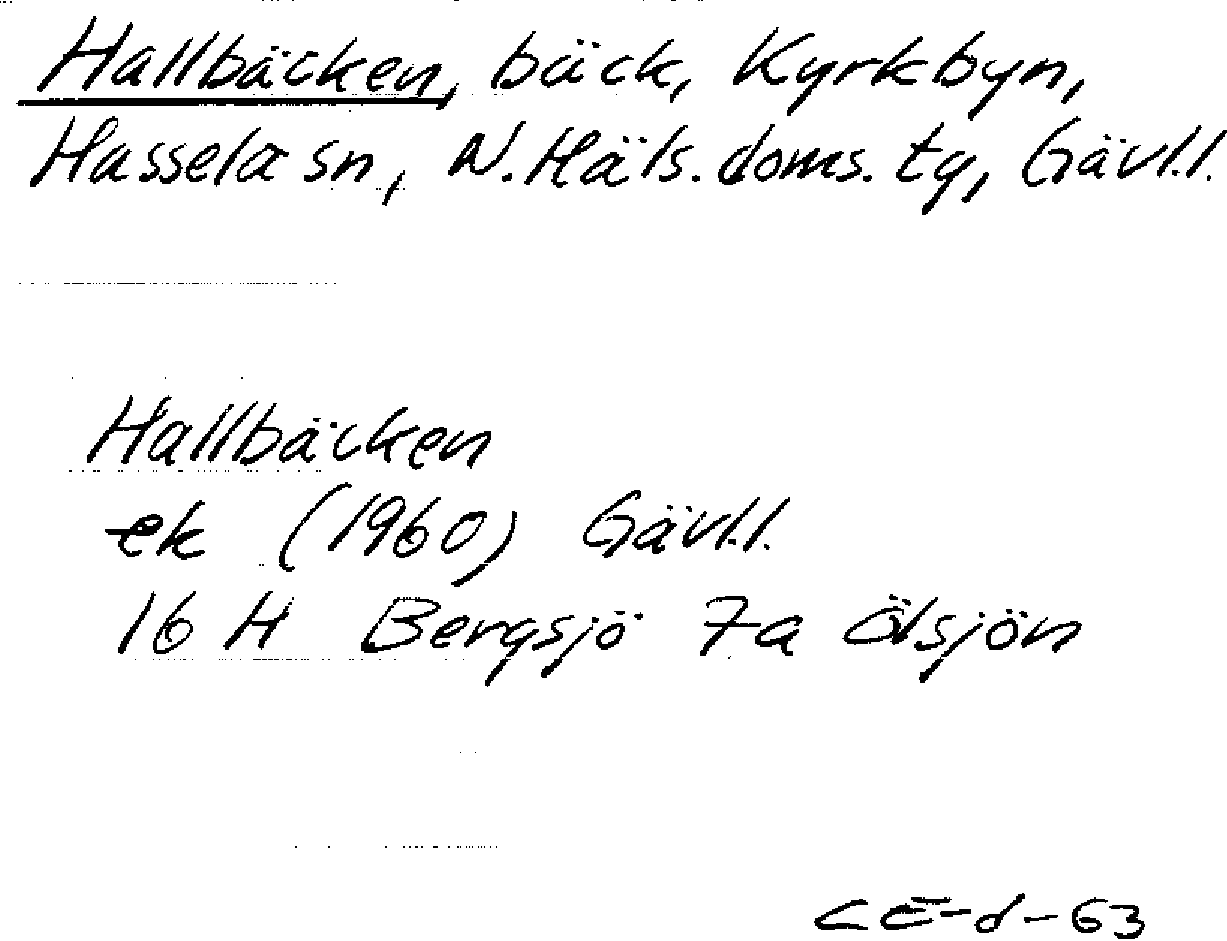 Hallbäcken, bäck, Kyrkbyn,
Hassela sn, N. Häls. doms. tg, Gävl.l.
Hallbäcken
ek (1960) Gävl.l.
16 H Bergsjö 7a Ölsjön
CE-d-63